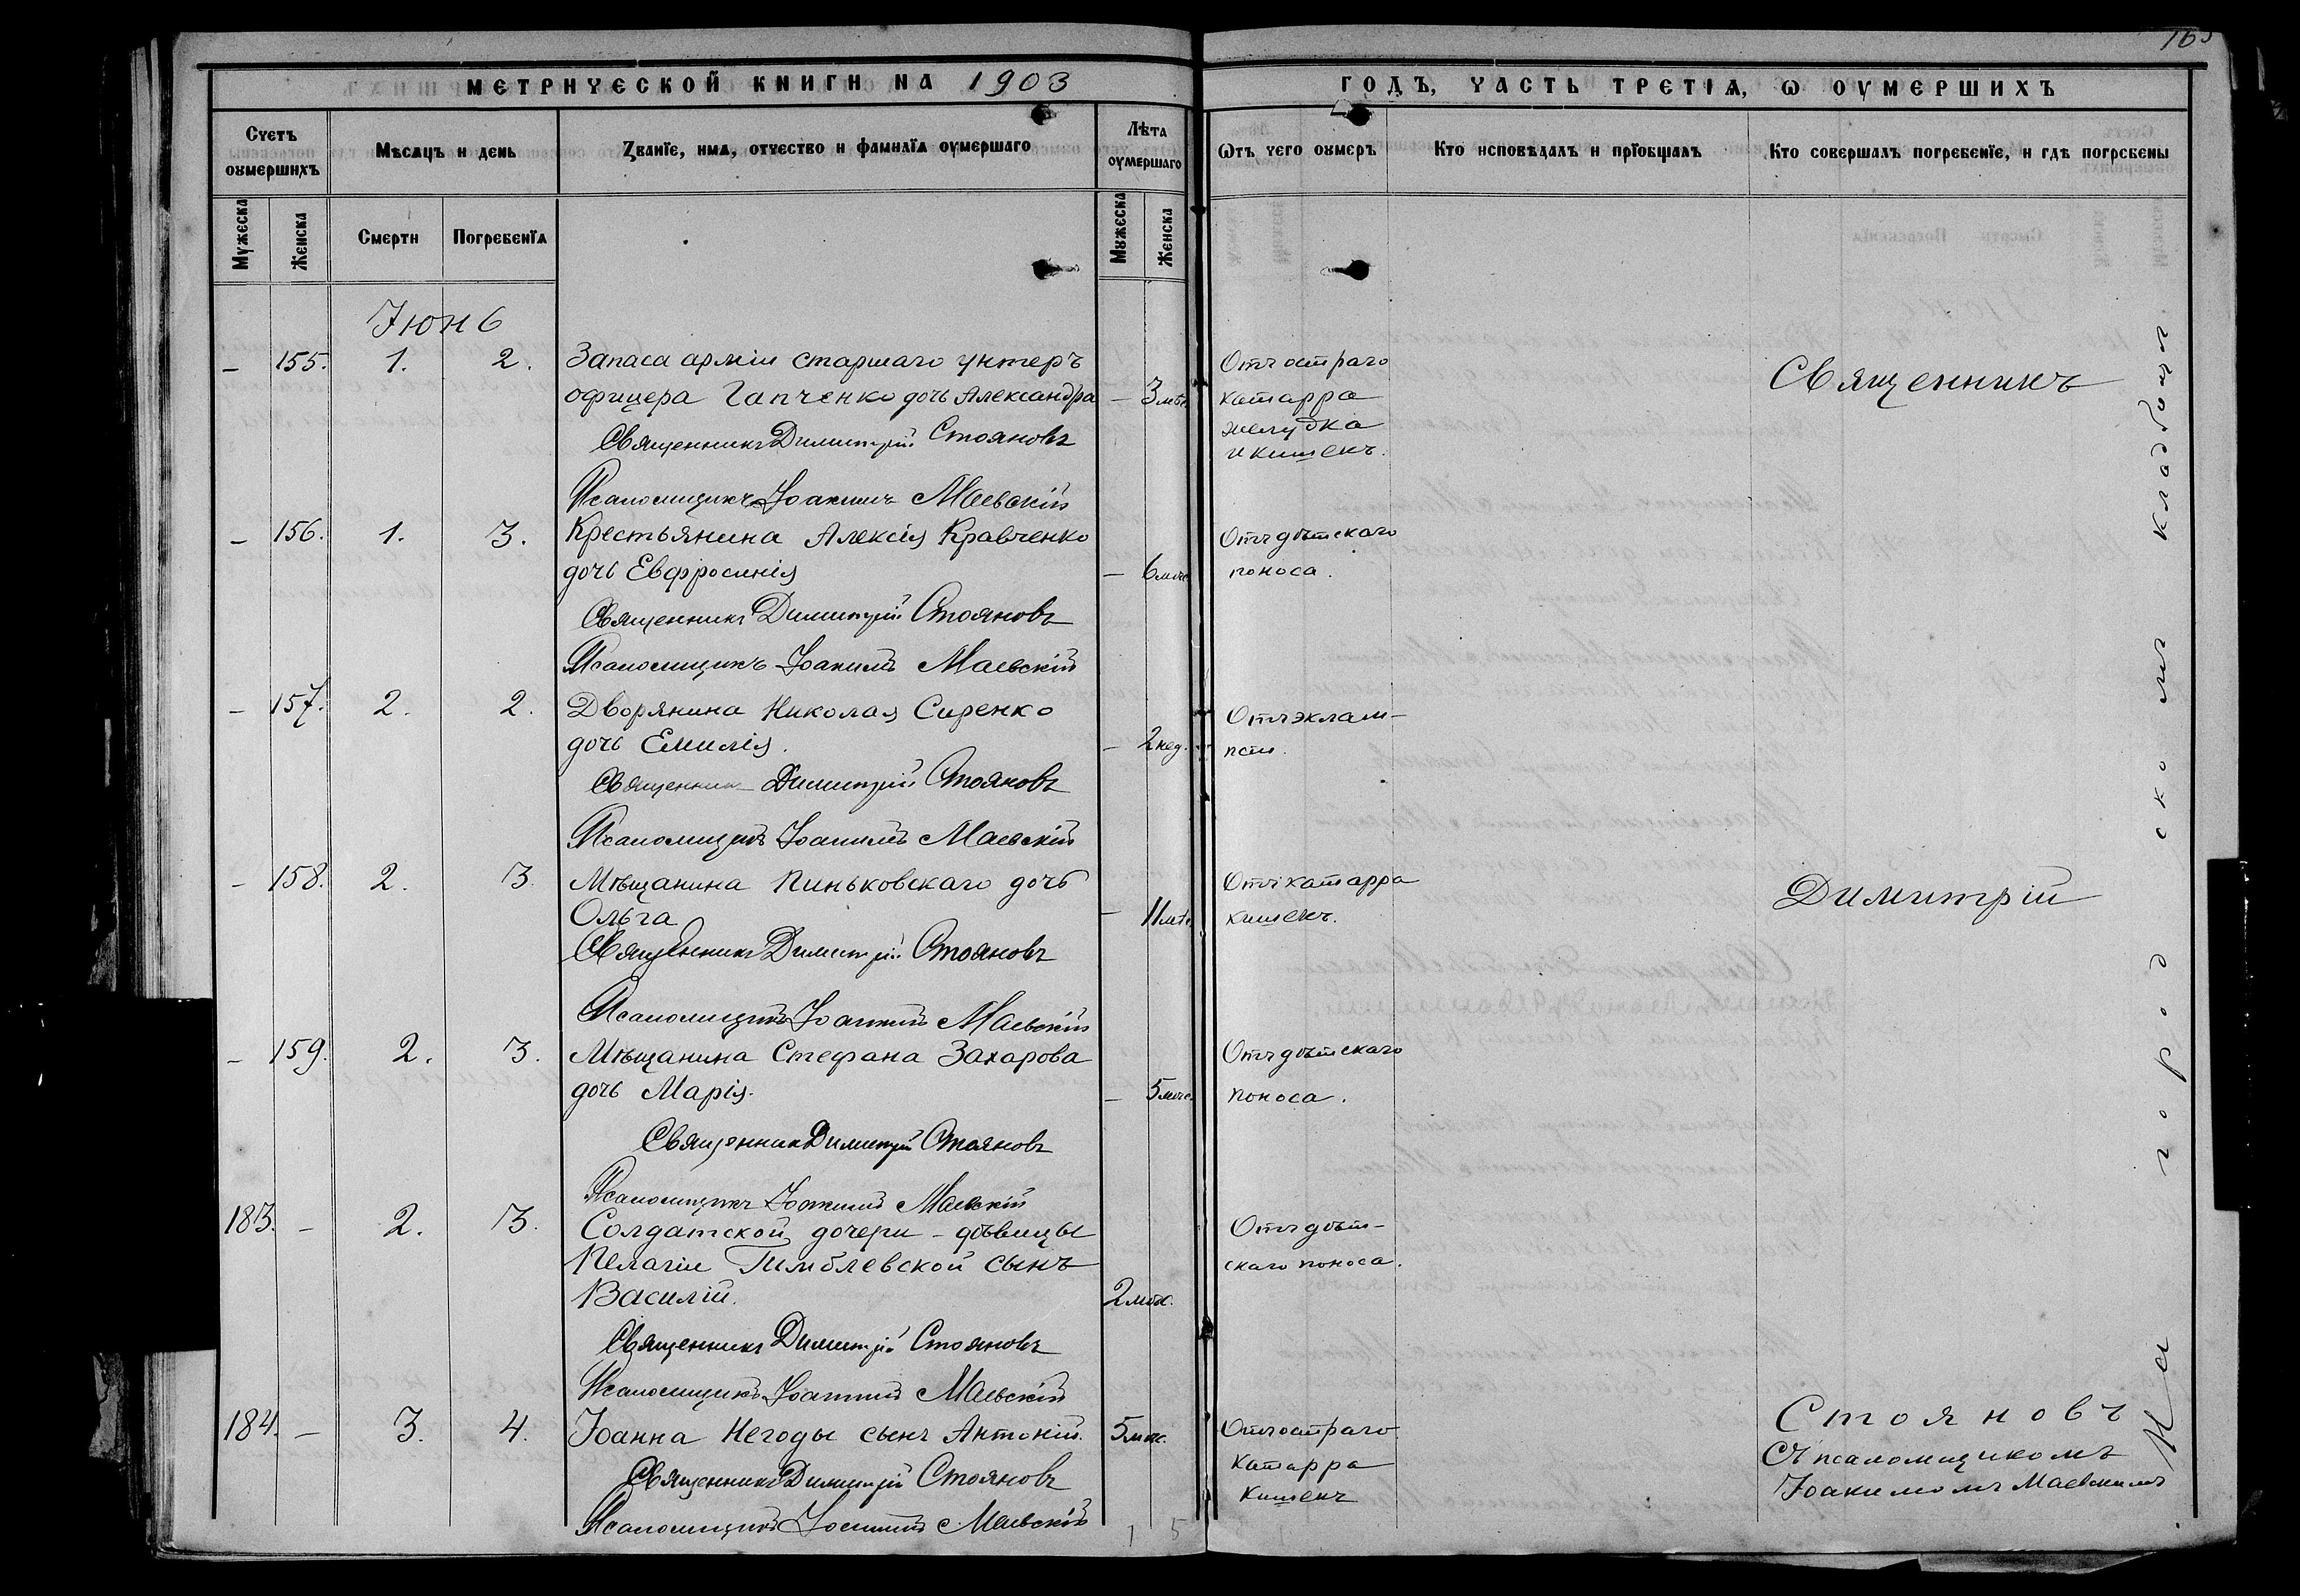 165
МЕТРИЧЕСКОЙ КНИГИ НА 1903
ГОДЪ, ЧАСТЬ ТРЕТІѦ, Ѡ ОУМЕРШИХЪ
Счетъ оумершихъ
Мѣсѧцъ и день
Званїе, имѧ, отчество и фамилїѧ оумершаго
Лѣта оумершаго
Ѿтъ чего оумеръ
Кто исповѣдалъ и прїобщалъ
Кто совершалъ погребенїе, и гдѣ погребены
Мужеска
Женска
Смерти
Погребенїѧ
Мужеска
Женска
Іюнь
— 155. 1. 2. Запаса арміи старшаго унтеръ
офицера Гапченко дочь Александра — 3 мѣс.
Священникъ Димитрій Стояновъ
Псаломщикъ Іоакимъ Маевскій
Отъ остраго
катарра
желудка
и кишекъ.
— 156. 1. 3. Крестьянина Алексія Кравченко
дочь Евфросинія — 6 мѣс.
Священникъ Димитрій Стояновъ
Псаломщикъ Іоакимъ Маевскій
Отъ дѣтскаго
поноса.
— 157. 2. 2. Дворянина Николая Сиренко
дочь Емилія. — 2 нед.
Священник Димитрій Стояновъ
Псаломщикъ Іоакимъ Маевскій
Отъ эклам-
псіи.
— 158. 2. 3. Мѣщанина Пиньковскаго дочь
Ольга — 11 мѣс.
Священникъ Димитрій Стояновъ
Псаломщикъ Іоакимъ Маевскій
Отъ катарра
кишекъ.
— 159. 2. 3. Мѣщанина Стефана Захарова
дочь Марія. — 5 мѣс.
Священник Димитрій Стояновъ
Псаломщикъ Іоакимъ Маевскій
Отъ дѣтскаго
поноса.
183. — 2. 3. Солдатской дочери - дѣвицы
Пелагіи Гимблевской сынъ
Василій. 2 мѣс.
Священникъ Димитрій Стояновъ
Псаломщикъ Іоакимъ Маевскій
Отъ дѣт-
скаго поноса.
184. — 3. 4. Іоанна Негоды сынъ Антоній. 5 мѣс.
Священникъ Димитрій Стояновъ
Псаломщикъ Іоакимъ Маевскій
Отъ остраго
катарра
кишекъ
1 5
Священникъ
Димитрій
Стояновъ
Съ псаломщикомъ
Іоакимомъ Маевскимъ
На городскомъ кладбищѣ.